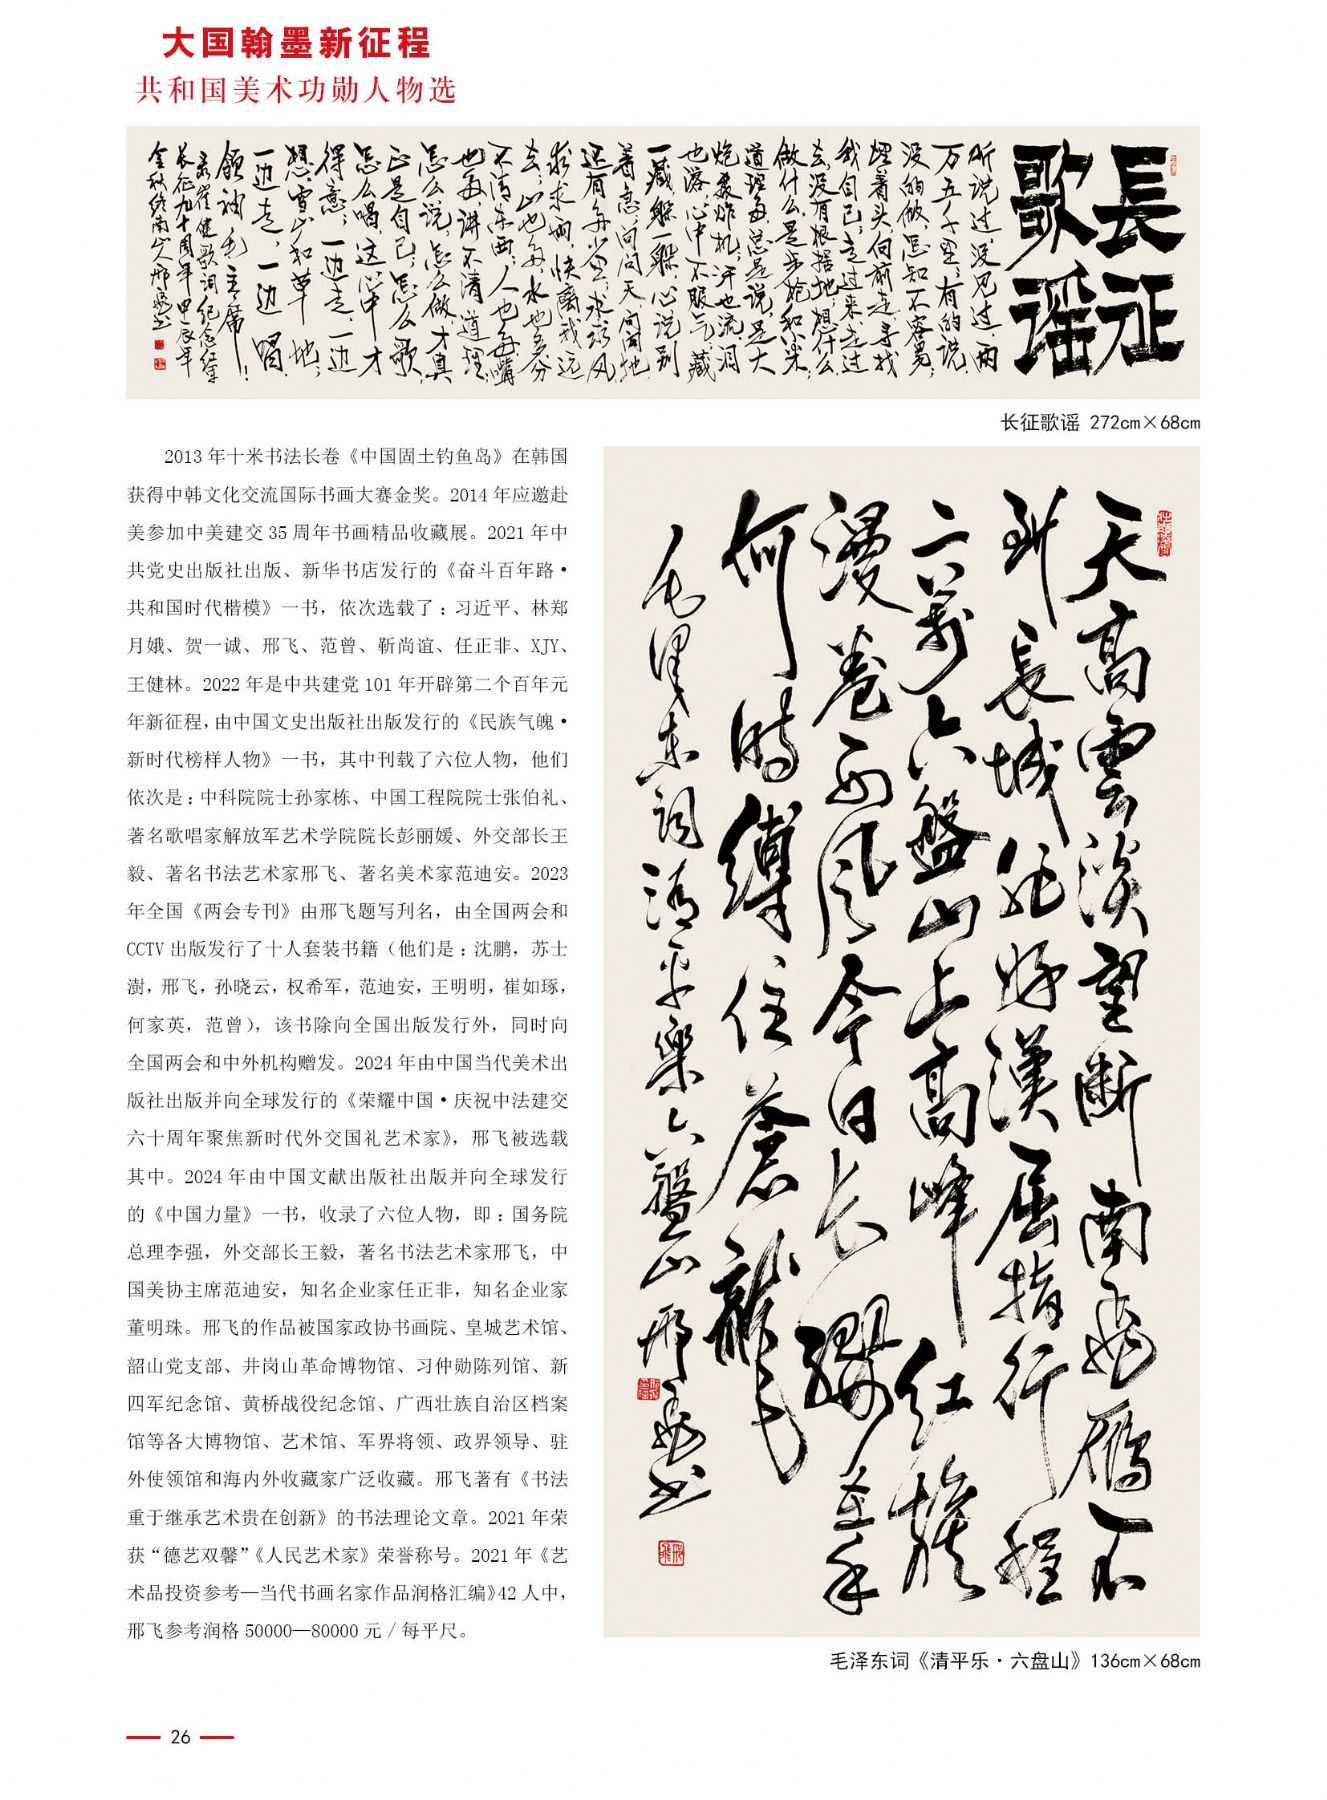 大国翰墨新征程
共和国美术功勋人物选
長征
歌謡
听说过没见过两
万五千里；有的说
没的做，怎知不容易；
埋着头向前走寻找
我自己；走过来走过
去没有根据地；想什么
做什么是步枪和米；
道理多总是说是大
炮轰炸机；汗也流泪
也落心中不服气；藏
一藏躲一躲心说别
着急；问问天问问地
还有多少里；求求风
求求雨快离我远
去；山也多水也多分
不清东西；人也多嘴
也多讲不清道理；
怎么说怎么做才真
正是自己；怎么歌
怎么唱这心中才
得意；一边走一边
想雪山和草地；
一边走，一边唱
领袖毛主席！
录崔健歌词纪念红军
长征九十周年甲辰年
金秋终南山人邢飞书
长征歌谣 272cm×68cm
2013 年十米书法长卷《中国固土钓鱼岛》在韩国
获得中韩文化交流国际书画大赛金奖。2014 年应邀赴
美参加中美建交 35 周年书画精品收藏展。2021 年中
共党史出版社出版、新华书店发行的《奋斗百年路·
共和国时代楷模》一书，依次选载了：习近平、林郑
月娥、贺一诚、邢飞、范曾、靳尚谊、任正非、XJY、
王健林。2022 年是中共建党 101 年开辟第二个百年元
年新征程，由中国文史出版社出版发行的《民族气魄·
新时代榜样人物》一书，其中刊载了六位人物，他们
依次是：中科院院士孙家栋、中国工程院院士张伯礼、
著名歌唱家解放军艺术学院院长彭丽媛、外交部长王
毅、著名书法艺术家邢飞、著名美术家范迪安。2023
年全国《两会专刊》由邢飞题写刊名，由全国两会和
CCTV 出版发行了十人套装书籍（他们是：沈鹏，苏士
澍，邢飞，孙晓云，权希军，范迪安，王明明，崔如琢，
何家英，范曾），该书除向全国出版发行外，同时向
全国两会和中外机构赠发。2024 年由中国当代美术出
版社出版并向全球发行的《荣耀中国·庆祝中法建交
六十周年聚焦新时代外交国礼艺术家》，邢飞被选载
其中。2024 年由中国文献出版社出版并向全球发行
的《中国力量》一书，收录了六位人物，即：国务院
总理李强，外交部长王毅，著名书法艺术家邢飞，中
国美协主席范迪安，知名企业家任正非，知名企业家
董明珠。邢飞的作品被国家政协书画院、皇城艺术馆、
韶山党支部、井岗山革命博物馆、习仲勋陈列馆、新
四军纪念馆、黄桥战役纪念馆、广西壮族自治区档案
馆等各大博物馆、艺术馆、军界将领、政界领导、驻
外使领馆和海内外收藏家广泛收藏。邢飞著有《书法
重于继承艺术贵在创新》的书法理论文章。2021 年荣
获“德艺双馨”《人民艺术家》荣誉称号。2021 年《艺
术品投资参考—当代书画名家作品润格汇编》42 人中，
邢飞参考润格 50000—80000 元 / 每平尺。
天高雲淡望断南飛雁不
到長城非好漢屈指行程
二萬六盤山上高峰红旗
漫卷西风今日长缨在手
何時縛住蒼龍
毛泽东词清平樂六盤山邢飛书
毛泽东词《清平乐·六盘山》136cm×68cm
26